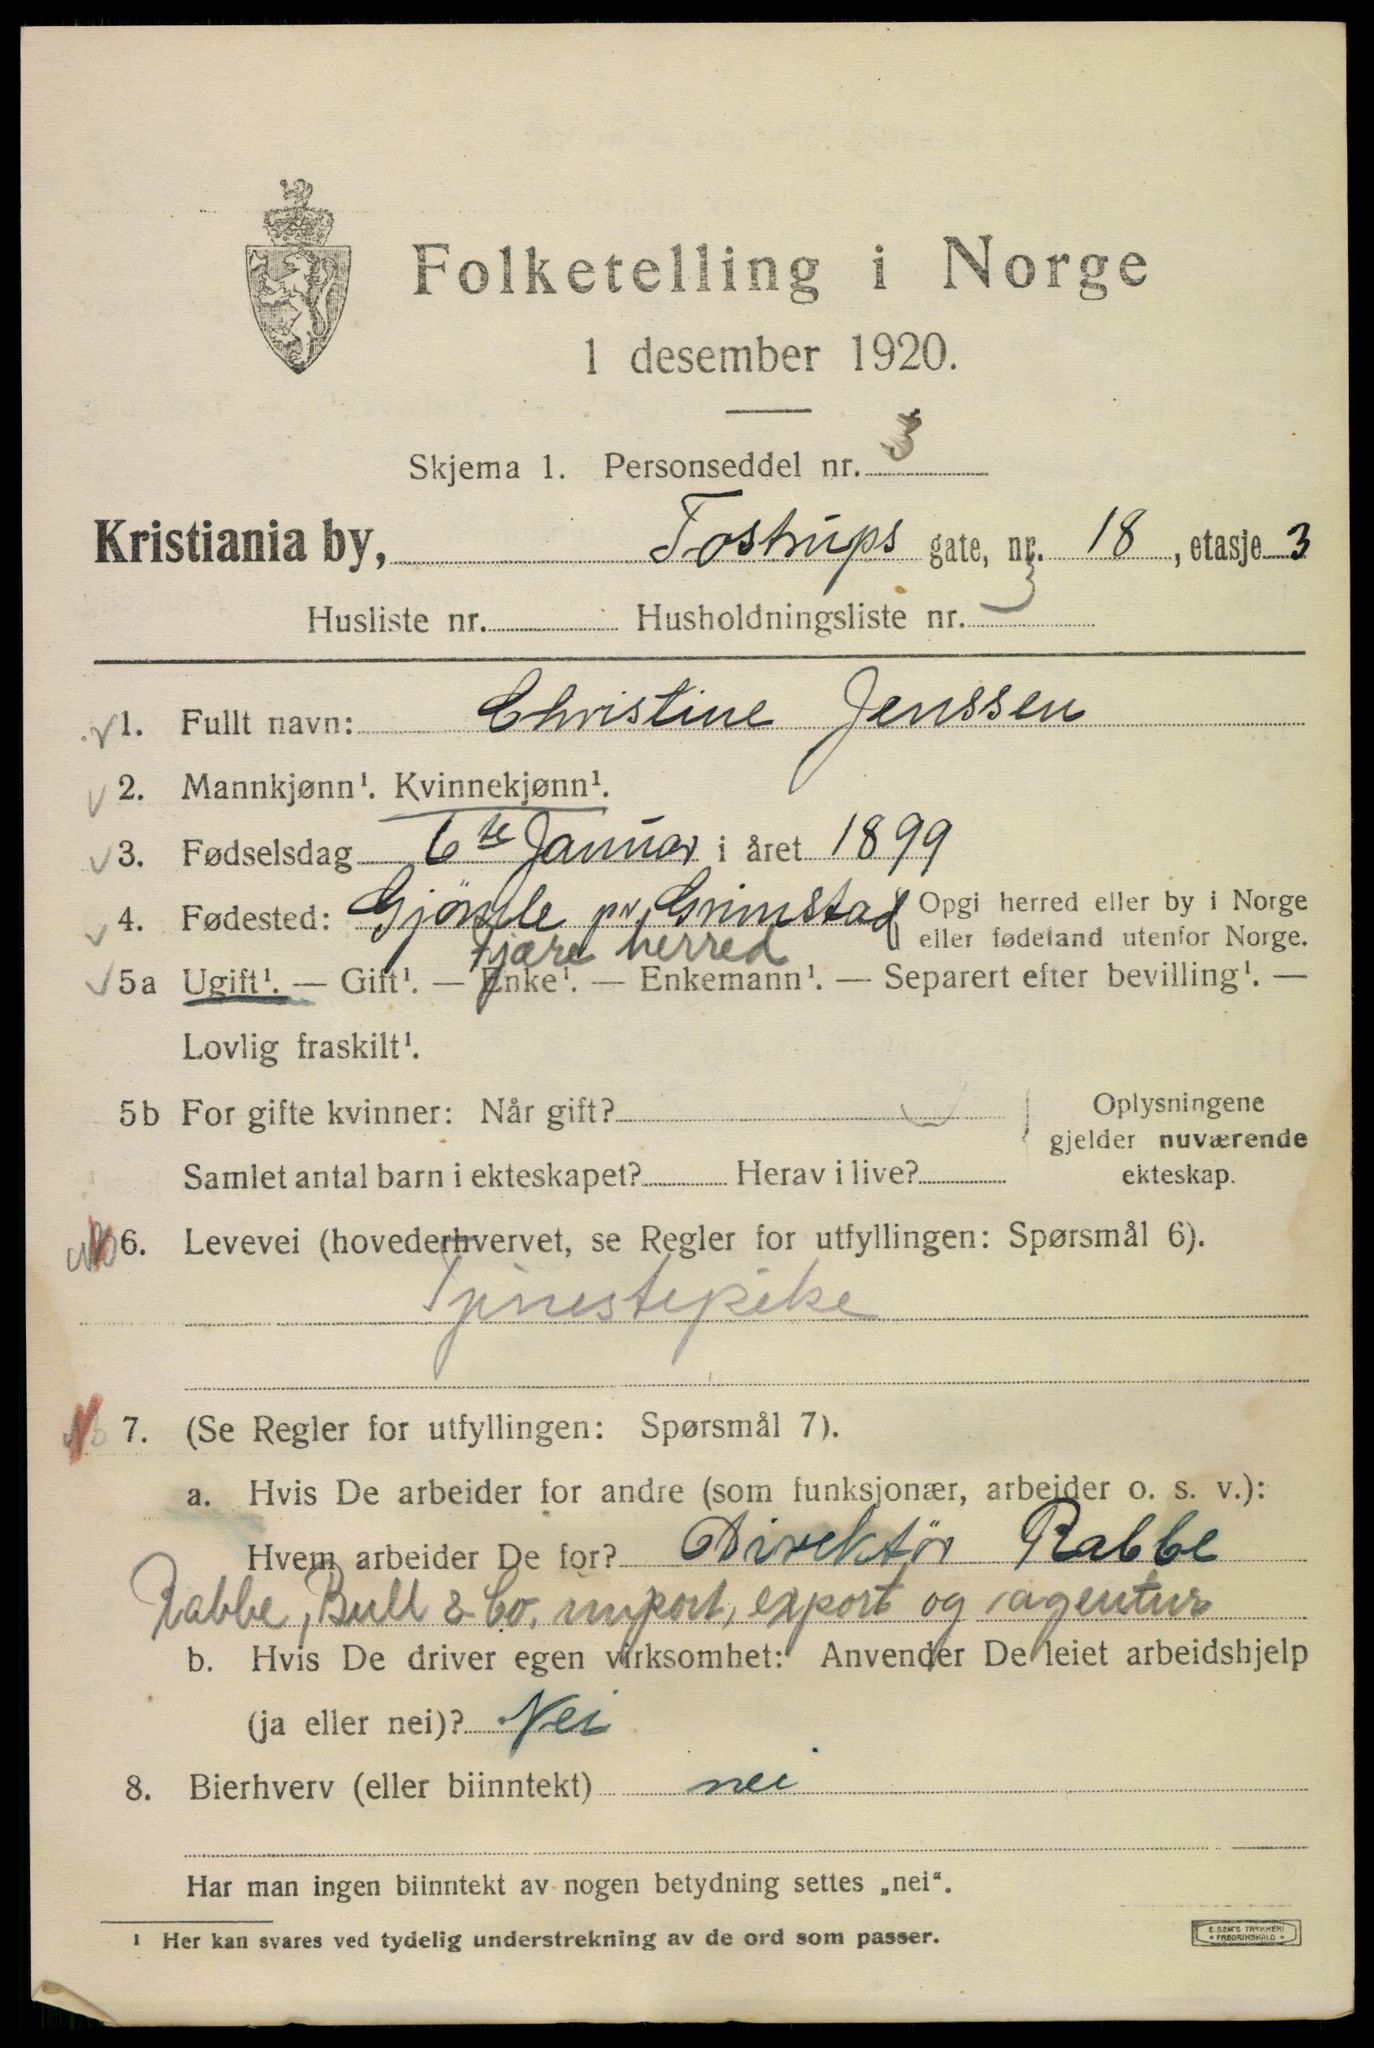 Folketelling i Norge
1 desember 1920.
Skjema 1. Personseddel nr. 3
Kristiania by, Tostrups gate, nr. 18, etasje 3
Husliste nr. Husholdningsliste nr. 3
1. Fullt navn: Christine Jenssen
2. Mannkjønn¹. Kvinnekjønn¹.
3. Fødselsdag 6te Januar i året 1899
4. Fødested: Gjömle pr. Grimstad Opgi herred eller by i Norge
Fjære herred eller fødeland utenfor Norge.
5a Ugift¹. — Gift¹. — Enke¹. — Enkemann¹. — Separert efter bevilling¹. —
Lovlig fraskilt¹.
5b For gifte kvinner: Når gift? Oplysningene
gjelder nuværende
Samlet antal barn i ekteskapet? Herav i live? ekteskap.
6. Levevei (hovederhvervet, se Regler for utfyllingen: Spørsmål 6).
Tjenestepike
7. (Se Regler for utfyllingen: Spørsmål 7).
a. Hvis De arbeider for andre (som funksjonær, arbeider o. s. v.):
Hvem arbeider De for? Direktør Rabbe
Rabbe, Bull & Co. import, export og agentur
b. Hvis De driver egen virksomhet: Anvender De leiet arbeidshjelp
(ja eller nei)? Nei
8. Bierhverv (eller biinntekt) nei
Har man ingen biinntekt av nogen betydning settes „nei“.
¹ Her kan svares ved tydelig understrekning av de ord som passer.
E. SEM'S TRYKKERI
FREDRIKSHALD